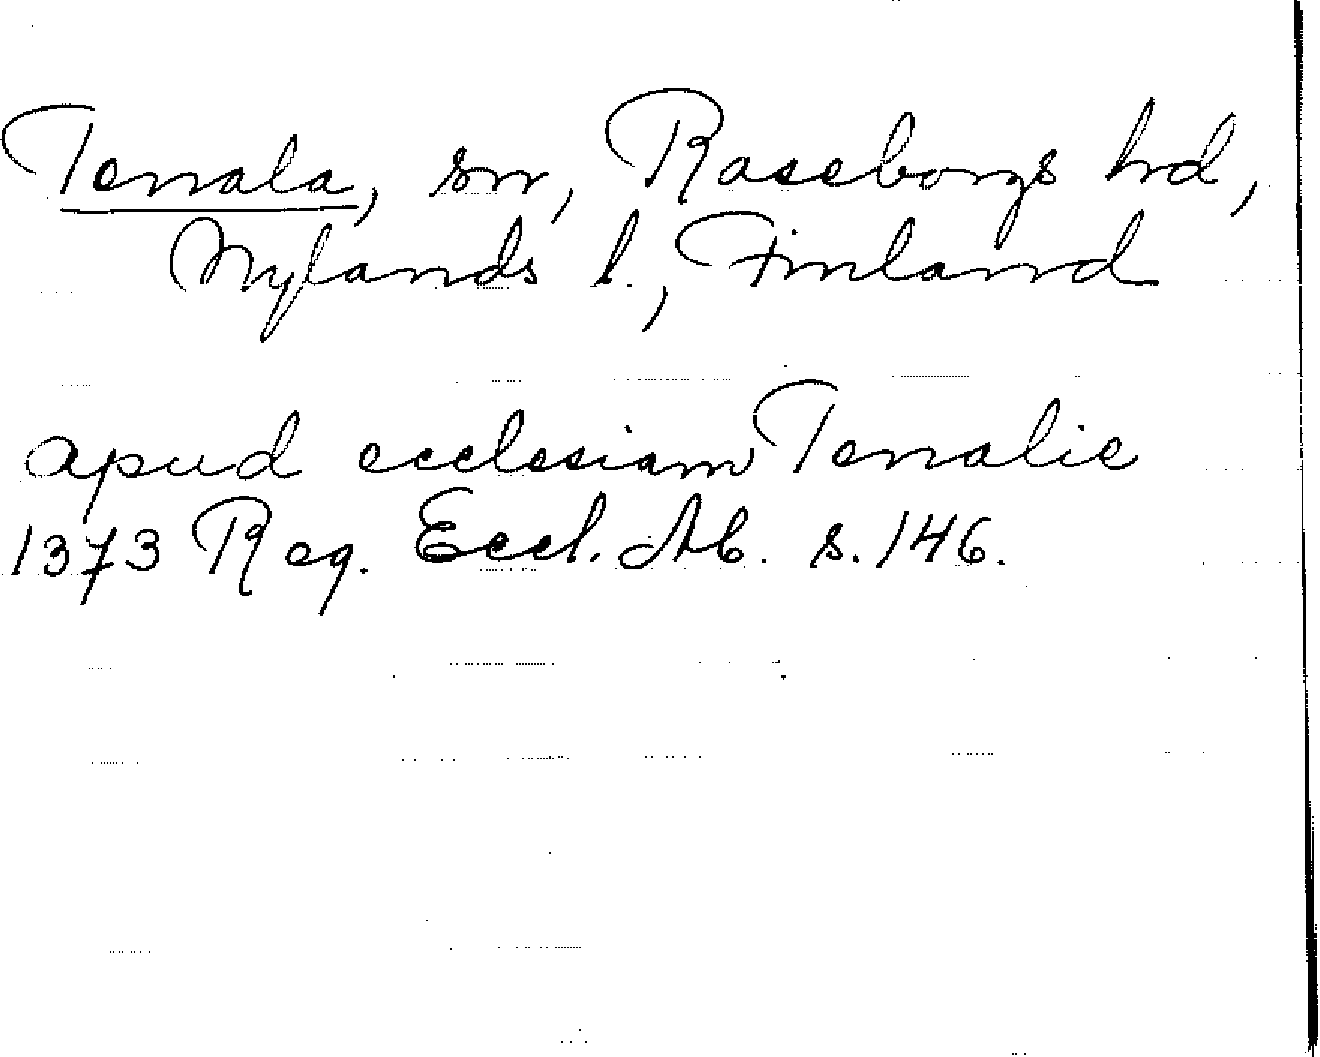 Tenala, sn, Raseborgs hd,
Nylands l., Finland
apud ecclesiam Tenalie
1373 Reg. Eccl. Ab. s. 146.